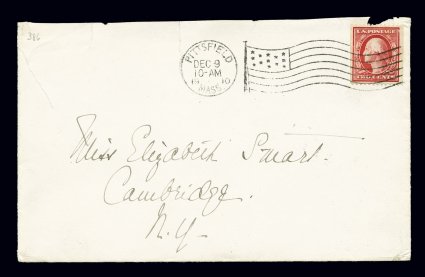 386
PITTSFIELD
DEC 9
10-AM
1910
MASS.
U.S. POSTAGE
TWO CENTS
Miss Elizabeth Smart.
Cambridge.
N.Y.